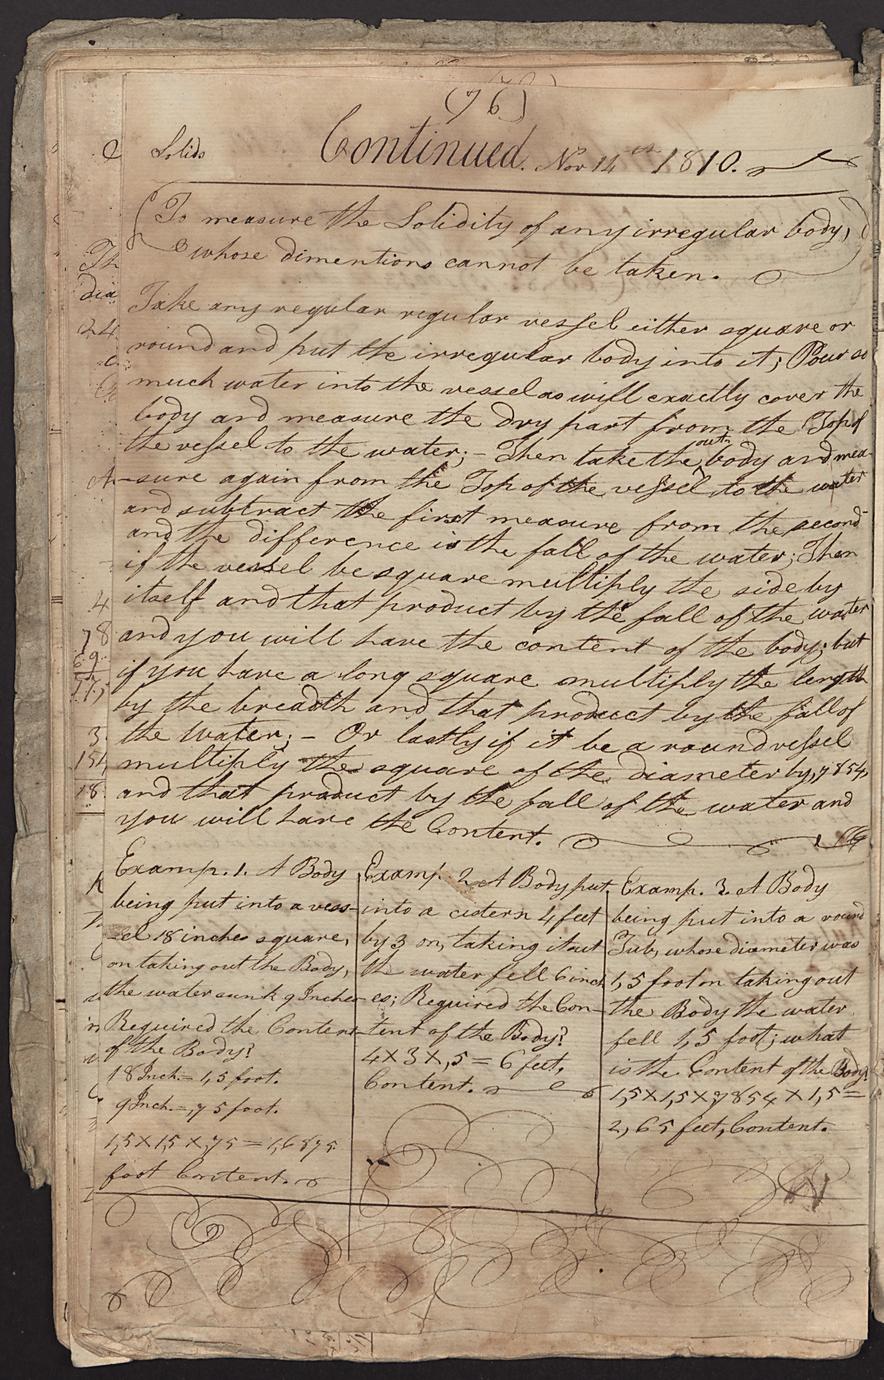 (76)
Solids Continued. Nov 14th 1810.
To measure the Solidity of any irregular body,
whose dimentions cannot be taken.
Take any regular regular vessel either square or
round and put the irregular body into it; Pour so
much water into the vessel as will exactly cover the
body and measure the dry part from the Top of
the vessel to the water; - Then take the out body and mea-
-sure again from the Top of the vessel to the water
and subtract the first measure from the second
and the difference is the fall of the water; Then
if the vessel be square multiply the side by
itself and that product by the fall of the water
and you will have the content of the body; but
if you have a long square multiply the length
by the breadth and that product by the fall of
the water; - Or lastly if it be a round vessel
multiply the square of the diameter by ,7854,
and that product by the fall of the water and
you will have the Content.
Examp. 1. A Body
being put into a vess-
-el 18 inches square,
on taking out the Body,
the water sunk 9 Inches
Required the Content
of the Body?
18 Inch. = 1,5 foot.
9 Inch. = ,75 foot.
1,5 X 1,5 X ,75 = 1,6875
foot Content.
Examp. 2. A Body put
into a cistern 4 feet
by 3 on, taking it out
the water fell 6 inch
-es; Required the Con-
-tent of the Body?
4 X 3 X ,5 = 6 feet,
Content.
Examp. 3. A Body
being put into a round
Tub, whose diameter was
1,5 foot on taking out
the Body the water
fell 1,5 foot; what
is the Content of the Body
1,5 X 1,5 X ,7854 X 1,5 =
2,65 feet, Content.